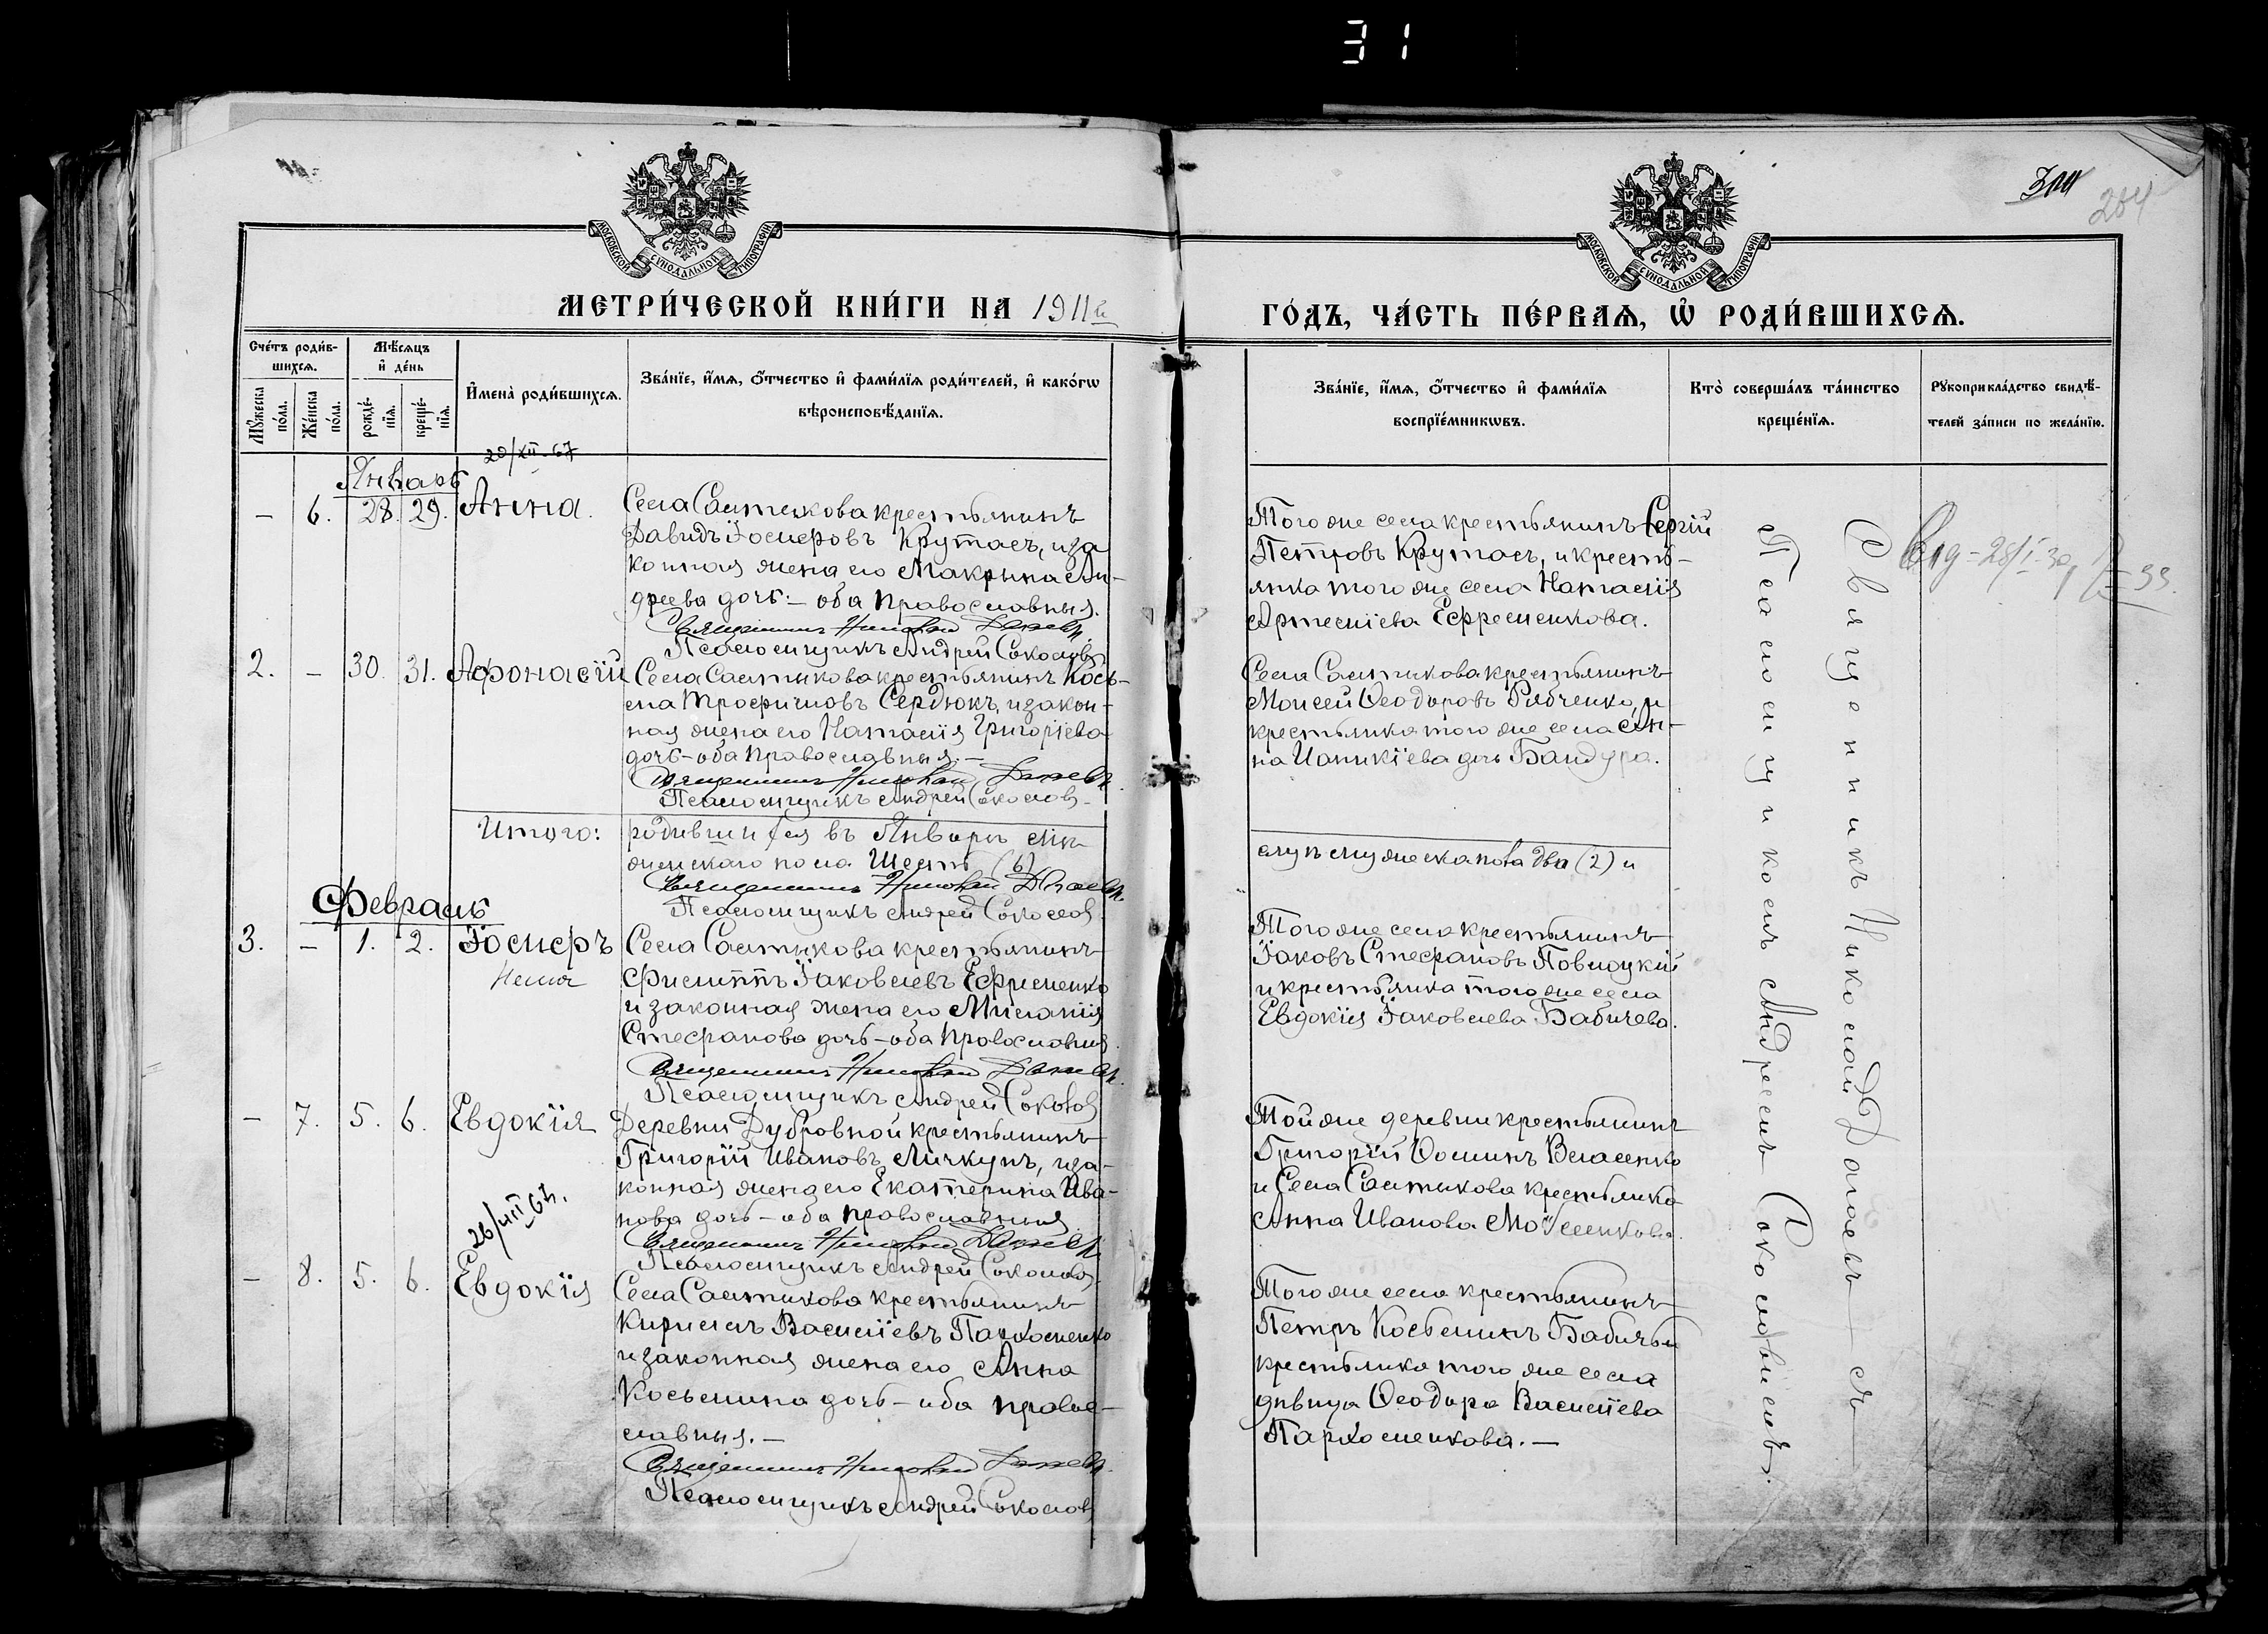 31
264
МОСКОВСКОЙ СѴНОДАЛЬНОЙ ТИПОГРАФІИ
МОСКОВСКОЙ СѴНОДАЛЬНОЙ ТИПОГРАФІИ
МЕТРИ́ЧЕСКОЙ КНИ́ГИ НА 1911й
ГО́ДЪ, ЧА́СТЬ ПЕ́РВАѦ, Ѡ҆ РОДИ́ВШИХСѦ.
Сче́тъ роди́в-
шихсѧ.
Мꙋ́жеска по́ла.
Же́нска по́ла.
Мѣ́сѧцъ
и҆ де́нь
рожде́-
нїѧ.
креще́-
нїѧ.
И҆мена̀ роди́вшихсѧ.
Зва́нїе, и҆́мѧ, ѻ҆́тчество и҆ фами́лїѧ роди́телей, и҆ како́гѡ
вѣроисповѣ́данїѧ.
Зва́нїе, и҆́мѧ, ѻ҆́тчество и҆ фами́лїѧ
воспрїе́мникѡвъ.
Кто̀ соверша́лъ та́инство
креще́нїѧ.
Рꙋкоприкла́дство свидѣ́-
телей за́писи по жела́нїю.
20/XII-67
Январь
— 6. 28. 29. Анна.
Села Салтыкова крестьянинъ
Давидъ Іосифовъ Крутасъ, и за
конная жена его Макрына Ан-
дреева дочь – оба православныя.
Священникъ Николай
Псаломщикъ Андрей Соколовъ
Того же села крестьянинъ Сергій
Петровъ Крутасъ, и кресть-
янка того же села Наталія
Артеміева Ефременкова.
2. — 30. 31. Афонасій
Села Салтыкова крестьянинъ Кось-
ма Трофимовъ Сердюкъ, и закон-
ная жена его Наталія Григоріева
дочь – оба православныя. —
Священникъ Николай
Псаломщикъ Андрей Соколовъ
Села Салтыкова крестьянинъ
Моисей Ѳеодоровъ Рябченко, и
крестьянка того же села Ан-
на Іоаникіева дочь Бандура.
Итого: родившихся въ Январѣ мѣ-
женскаго пола Шесть (6)
Священникъ Николай
Псаломщикъ Андрей Соколовъ
сяцѣ мужеска пола два (2) и
Февраль
3. — 1. 2. Іосифъ
Села Салтыкова крестьянинъ
Филиппъ Іаковлевъ Ефименко
и законная жена его Миланія
Стефанова дочь – оба православныя
Священникъ Николай
Псаломщикъ Андрей Соколовъ
Того же села крестьянинъ
Іаковъ Стефановъ
и крестьянка того же села
Евдокія Іаковлева Бабичева.
— 7. 5. 6. Евдокія
Деревни Дубровной крестьянинъ
Григорій Ивановъ Личкунъ, и за-
конная жена его Екатерина Ива-
нова дочь – оба православныя
Священникъ Николай
Псаломщикъ Андрей Соколовъ
Той же деревни крестьянинъ
Григорій Ѳоминъ Власенко
и Села Салтыкова крестьянка
Анна Иванова
— 8. 5. 6. Евдокія
Села Салтыкова крестьянинъ
Кириллъ Василіевъ Пархоменко
и законная жена его Анна
Косьмина дочь – оба правос-
лавныя. —
Священникъ Николай
Псаломщикъ Андрей Соколовъ
Того же села крестьянинъ
Петръ Косьминъ Бабичъ и
крестьянка того же села
дѣвица Ѳеодора Василіева
Пархоменкова. —
Священникъ Николай
Псаломщикомъ Андреемъ Соколовымъ.